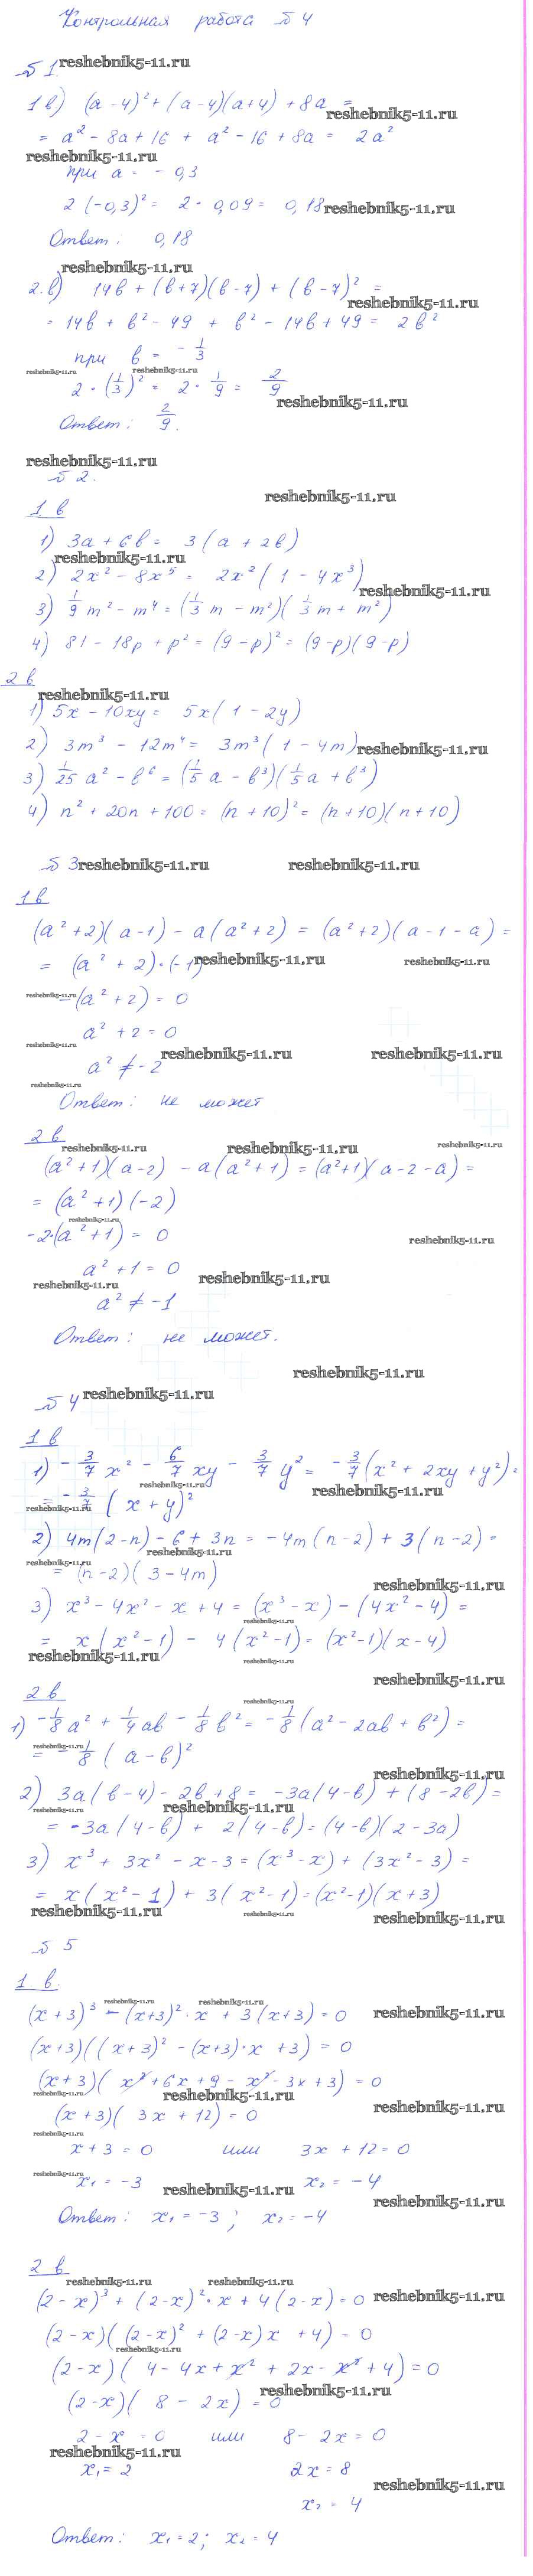 Контрольная работа №4
№1 reshebnik5-11.ru
1 в) (a-4)² + (a-4)(a+4) + 8a =
reshebnik5-11.ru
= a² - 8a + 16 + a² - 16 + 8a = 2a²
reshebnik5-11.ru
при a = -0,3
2(-0,3)² = 2·0,09 = 0,18 reshebnik5-11.ru
Ответ: 0,18
reshebnik5-11.ru
2.в) 14в + (в+7)(в-7) + (в-7)² =
reshebnik5-11.ru
= 14в + в² - 49 + в² - 14в + 49 = 2в²
при в = -1/3
reshebnik5-11.ru reshebnik5-11.ru
2·(1/3)² = 2·1/9 = 2/9
reshebnik5-11.ru
Ответ: 2/9.
reshebnik5-11.ru
№2.
reshebnik5-11.ru
1 в
1) 3a + 6в = 3(a + 2в)
reshebnik5-11.ru
2) 2x² - 8x⁵ = 2x²(1 - 4x³)
reshebnik5-11.ru
3) 1/9 m² - m⁴ = (1/3 m - m²)(1/3 m + m²)
4) 81 - 18p + p² = (9-p)² = (9-p)(9-p)
2 в
reshebnik5-11.ru
1) 5x - 10xy = 5x(1 - 2y)
2) 3m³ - 12m⁴ = 3m³(1 - 4m) reshebnik5-11.ru
3) 1/25 a² - в⁶ = (1/5 a - в³)(1/5 a + в³)
4) n² + 20n + 100 = (n+10)² = (n+10)(n+10)
№3 reshebnik5-11.ru reshebnik5-11.ru
1 в
(a²+2)(a-1) - a(a²+2) = (a²+2)(a-1-a) =
= (a²+2)·(-1) reshebnik5-11.ru reshebnik5-11.ru
reshebnik5-11.ru -(a²+2) = 0
a² + 2 = 0
reshebnik5-11.ru
a² ≠ -2 reshebnik5-11.ru reshebnik5-11.ru
reshebnik5-11.ru
Ответ: не может
2 в
reshebnik5-11.ru reshebnik5-11.ru reshebnik5-11.ru
(a²+1)(a-2) - a(a²+1) = (a²+1)(a-2-a) =
= (a²+1)(-2)
reshebnik5-11.ru
-2·(a²+1) = 0
reshebnik5-11.ru
a² + 1 = 0
reshebnik5-11.ru reshebnik5-11.ru
a² ≠ -1
Ответ: не может.
reshebnik5-11.ru
№4 reshebnik5-11.ru
1 в
1) -3/7 x² - 6/7 xy - 3/7 y² = -3/7(x² + 2xy + y²) =
reshebnik5-11.ru reshebnik5-11.ru
= -3/7(x+y)²
reshebnik5-11.ru
2) 4m(2-n) - 6 + 3n = -4m(n-2) + 3(n-2) =
reshebnik5-11.ru
reshebnik5-11.ru
= (n-2)(3-4m)
reshebnik5-11.ru
3) x³ - 4x² - x + 4 = (x³-x) - (4x²-4) =
reshebnik5-11.ru
= x(x²-1) - 4(x²-1) = (x²-1)(x-4)
reshebnik5-11.ru reshebnik5-11.ru
reshebnik5-11.ru
2 в
reshebnik5-11.ru
1) -1/8 a² + 1/4 aв - 1/8 в² = -1/8(a² - 2aв + в²) =
reshebnik5-11.ru
= -1/8(a-в)²
reshebnik5-11.ru
2) 3a(в-4) - 2в + 8 = -3a(4-в) + (8-2в) =
reshebnik5-11.ru reshebnik5-11.ru
= -3a(4-в) + 2(4-в) = (4-в)(2-3a)
3) x³ + 3x² - x - 3 = (x³-x) + (3x²-3) =
= x(x²-1) + 3(x²-1) = (x²-1)(x+3)
reshebnik5-11.ru reshebnik5-11.ru reshebnik5-11.ru
№5
1 в.
reshebnik5-11.ru reshebnik5-11.ru
(x+3)³ - (x+3)²·x + 3(x+3) = 0 reshebnik5-11.ru
(x+3)((x+3)² - (x+3)·x + 3) = 0
(x+3)(x² + 6x + 9 - x² - 3x + 3) = 0
reshebnik5-11.ru reshebnik5-11.ru reshebnik5-11.ru
(x+3)(3x + 12) = 0
reshebnik5-11.ru
x + 3 = 0 или 3x + 12 = 0
reshebnik5-11.ru
x₁ = -3 reshebnik5-11.ru x₂ = -4
reshebnik5-11.ru
Ответ: x₁ = -3; x₂ = -4
2 в
reshebnik5-11.ru reshebnik5-11.ru
(2-x)³ + (2-x)²·x + 4(2-x) = 0 reshebnik5-11.ru
(2-x)((2-x)² + (2-x)x + 4) = 0
reshebnik5-11.ru
(2-x)(4 - 4x + x² + 2x - x² + 4) = 0
reshebnik5-11.ru
(2-x)(8 - 2x) = 0
2 - x = 0 или 8 - 2x = 0
reshebnik5-11.ru
x₁ = 2 2x = 8
reshebnik5-11.ru
x₂ = 4
Ответ: x₁ = 2; x₂ = 4